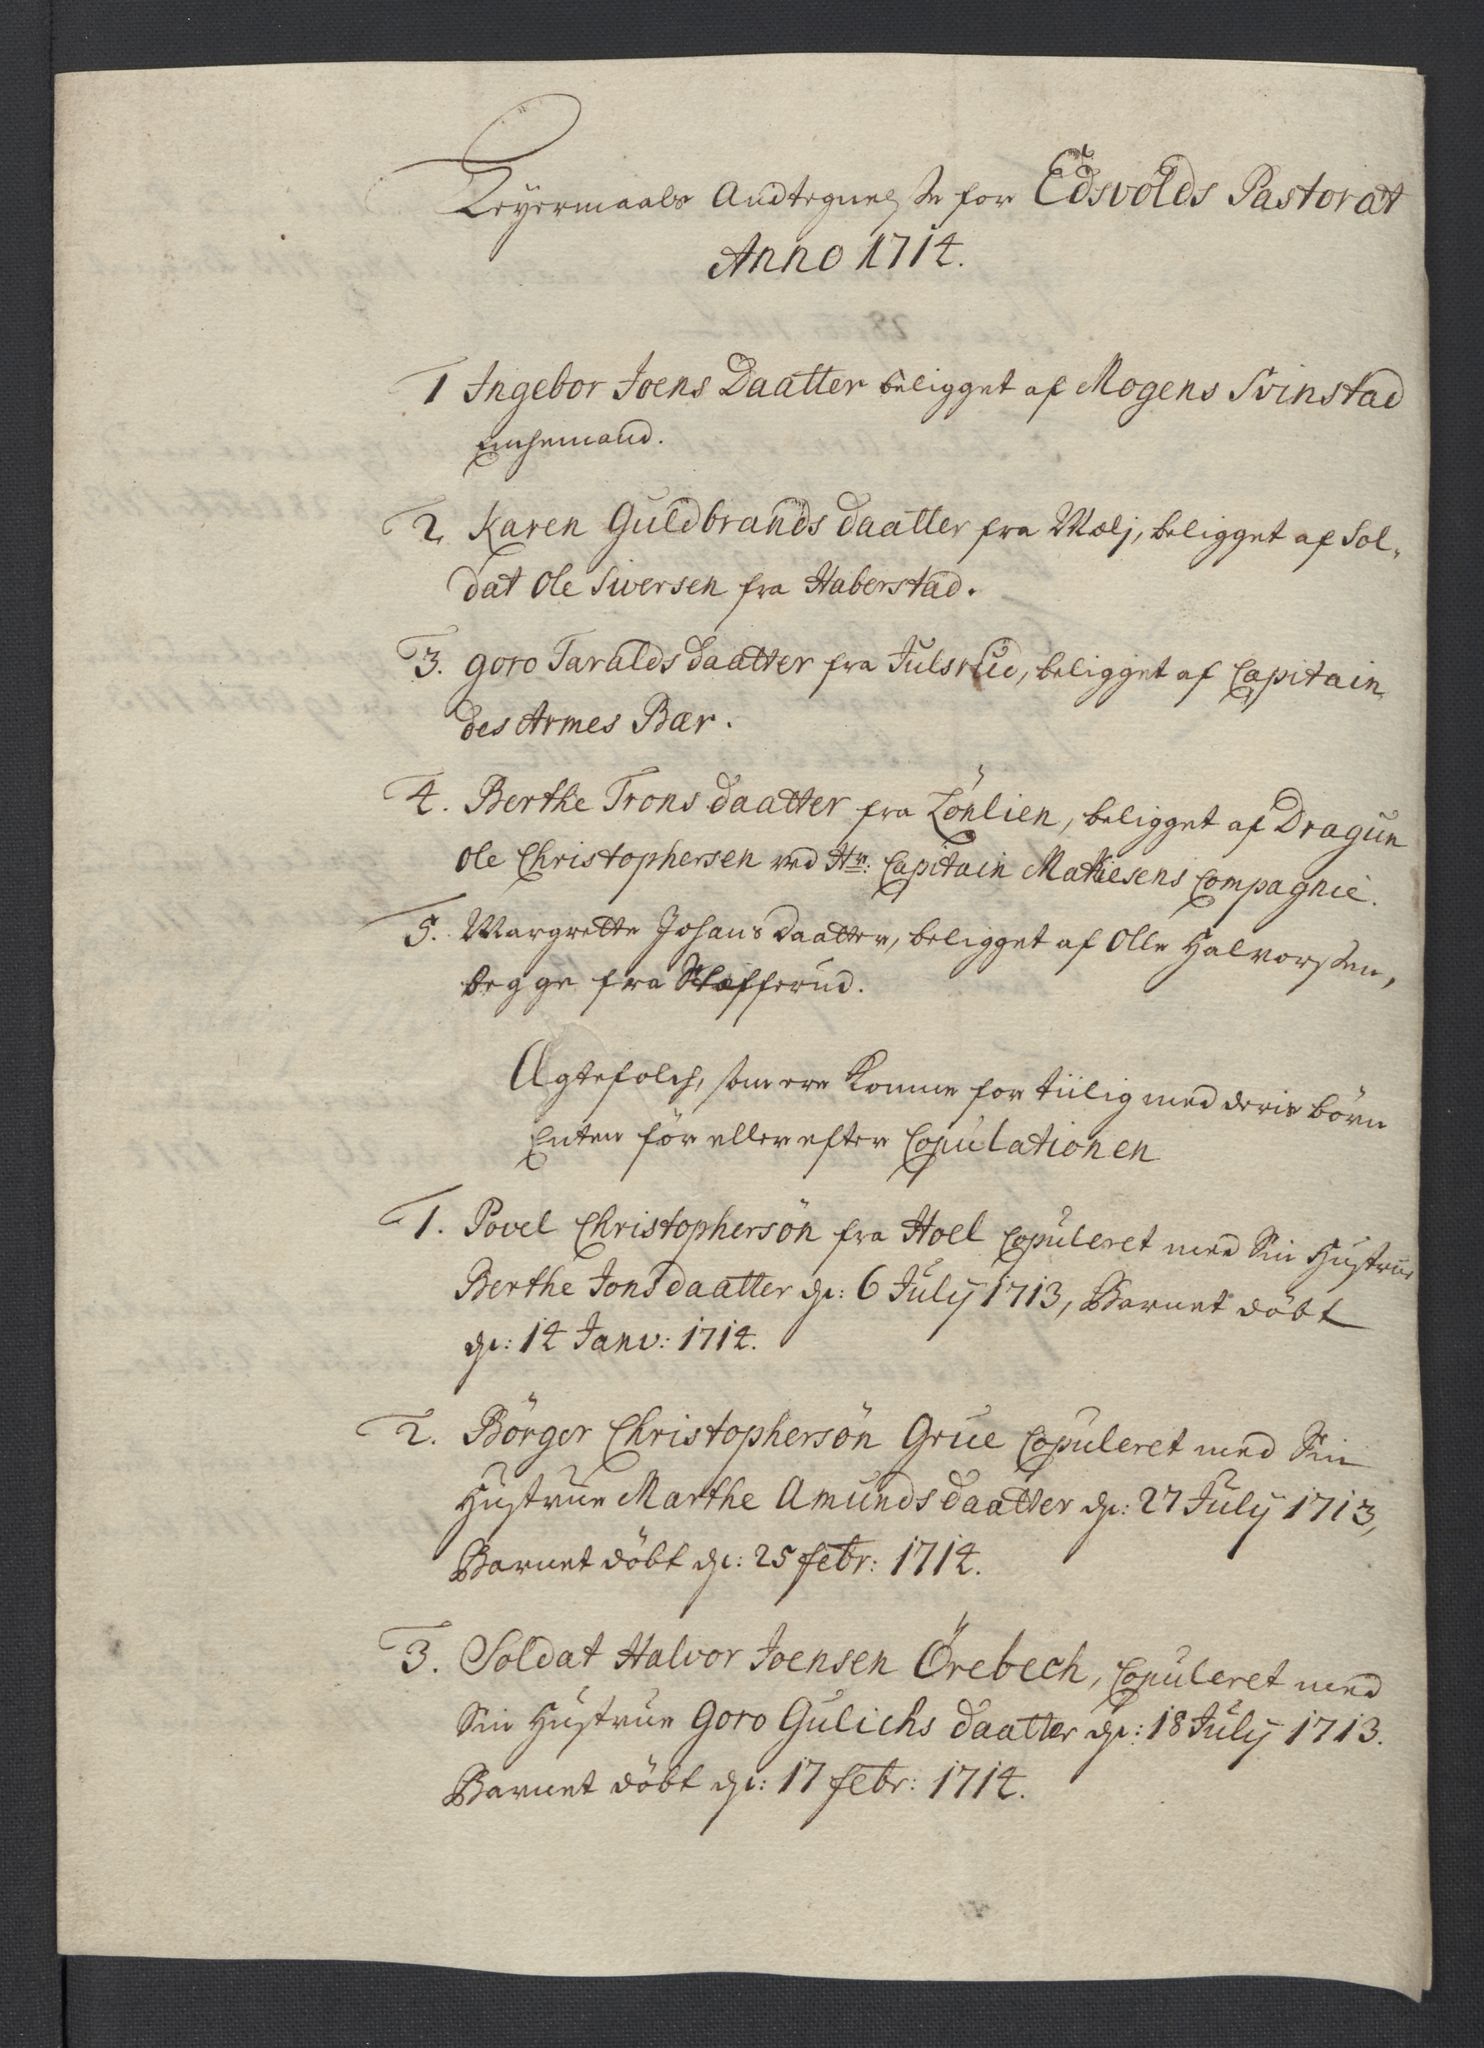 Leyermaals Andtegnelse for Edsvolds Pastorat
Anno 1714.
1 Ingebor Joens Daatter beligget af Mogens Svinstad
Enchemand.
2. Karen Guldbrands daatter fra Mælj, beligget af Sol-
dat Ole Siversen fra Haberstad.
3. Goro Taralds daatter fra Julsrud, beligget af Capitain
des Armes Bær.
4. Berthe Trons daatter fra Lönlien, beligget af Dragun
Ole Christophersen ved Hr: Capitain Mathiesens Compagnie.
5. Margrette Johans daatter, beligget af Olle Halvorssen,
begge fra Stæfferud.
Ægtefolch, som ere komne for tiilig med deris börn
Enten för eller efter Copulationen
1. Povel Christophersön fra Hoel Copuleret med Sin Hustrue
Berthe Jons daatter dn: 6 Julÿ 1713, Barnet döbt
dn: 14 Janv: 1714.
2. Börger Christophersön Grue Copuleret med Sin
Hustrue Marthe Amunds daatter dn: 27 Julÿ 1713,
Barnet döbt dn: 25 febr: 1714.
3. Soldat Halvor Joensen Örebech, Copuleret med
Sin Hustrue Goro Gulichs daatter dn: 18 Julÿ 1713.
Barnet döbt dn: 17 febr: 1714.